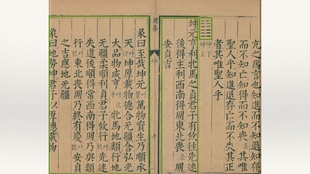 亢之爲言也知進而不知退知存
而不知亡知得而不知喪其唯
聖人乎知進退存亡而不失其正
者其唯聖人乎
坤下
坤上
坤元亨利牝馬之貞君子有攸往先迷
後得主利西南得朋東北喪朋安貞
彖曰至哉坤元萬物資生乃順承
天坤厚載物德合无疆含弘光
大品物咸亨牝馬地類行地
无疆柔順利貞君子攸行先迷
失道後順得常西南得朋乃與類
行東北喪朋乃終有慶安貞
之吉應地无疆
象曰地勢坤君子以厚德載物